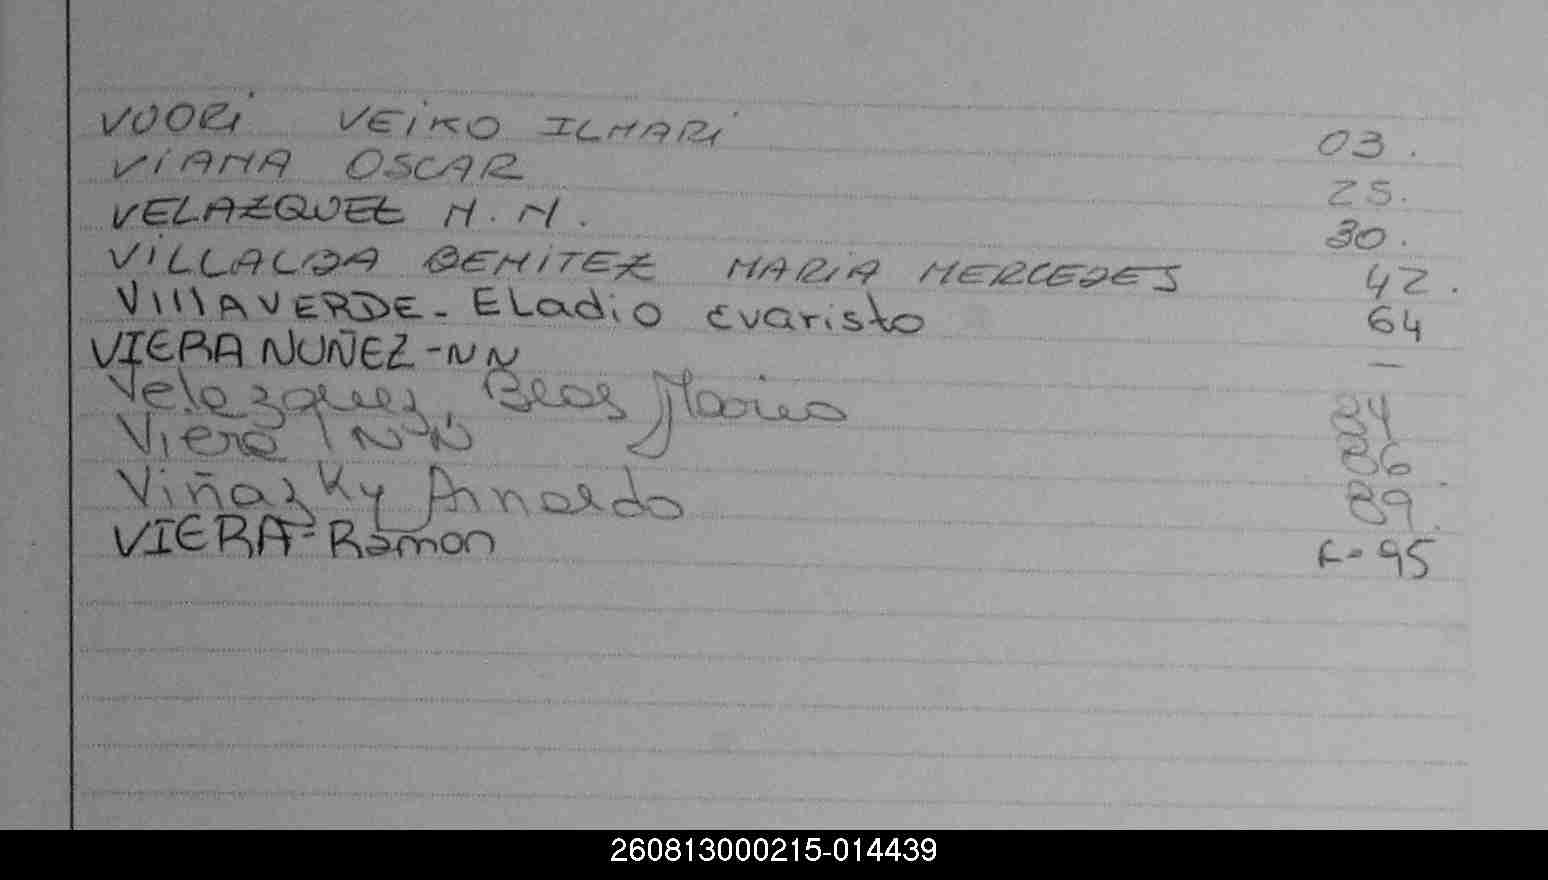 VUORi VEiKO ILMARi 03.
ViANA OSCAR 25.
VELAZQUEZ N.N. 30.
ViLLALBA BENiTEZ MARiA MERCEDES 42.
VIllAVERDE - ELadio Evaristo 64
VIERA NUÑEZ - NN —
Velazquez, Blas Mario 84
Viera, N.N 86
Viñazky Arnaldo 89.
VIERA - Ramon F-95
260813000215-014439